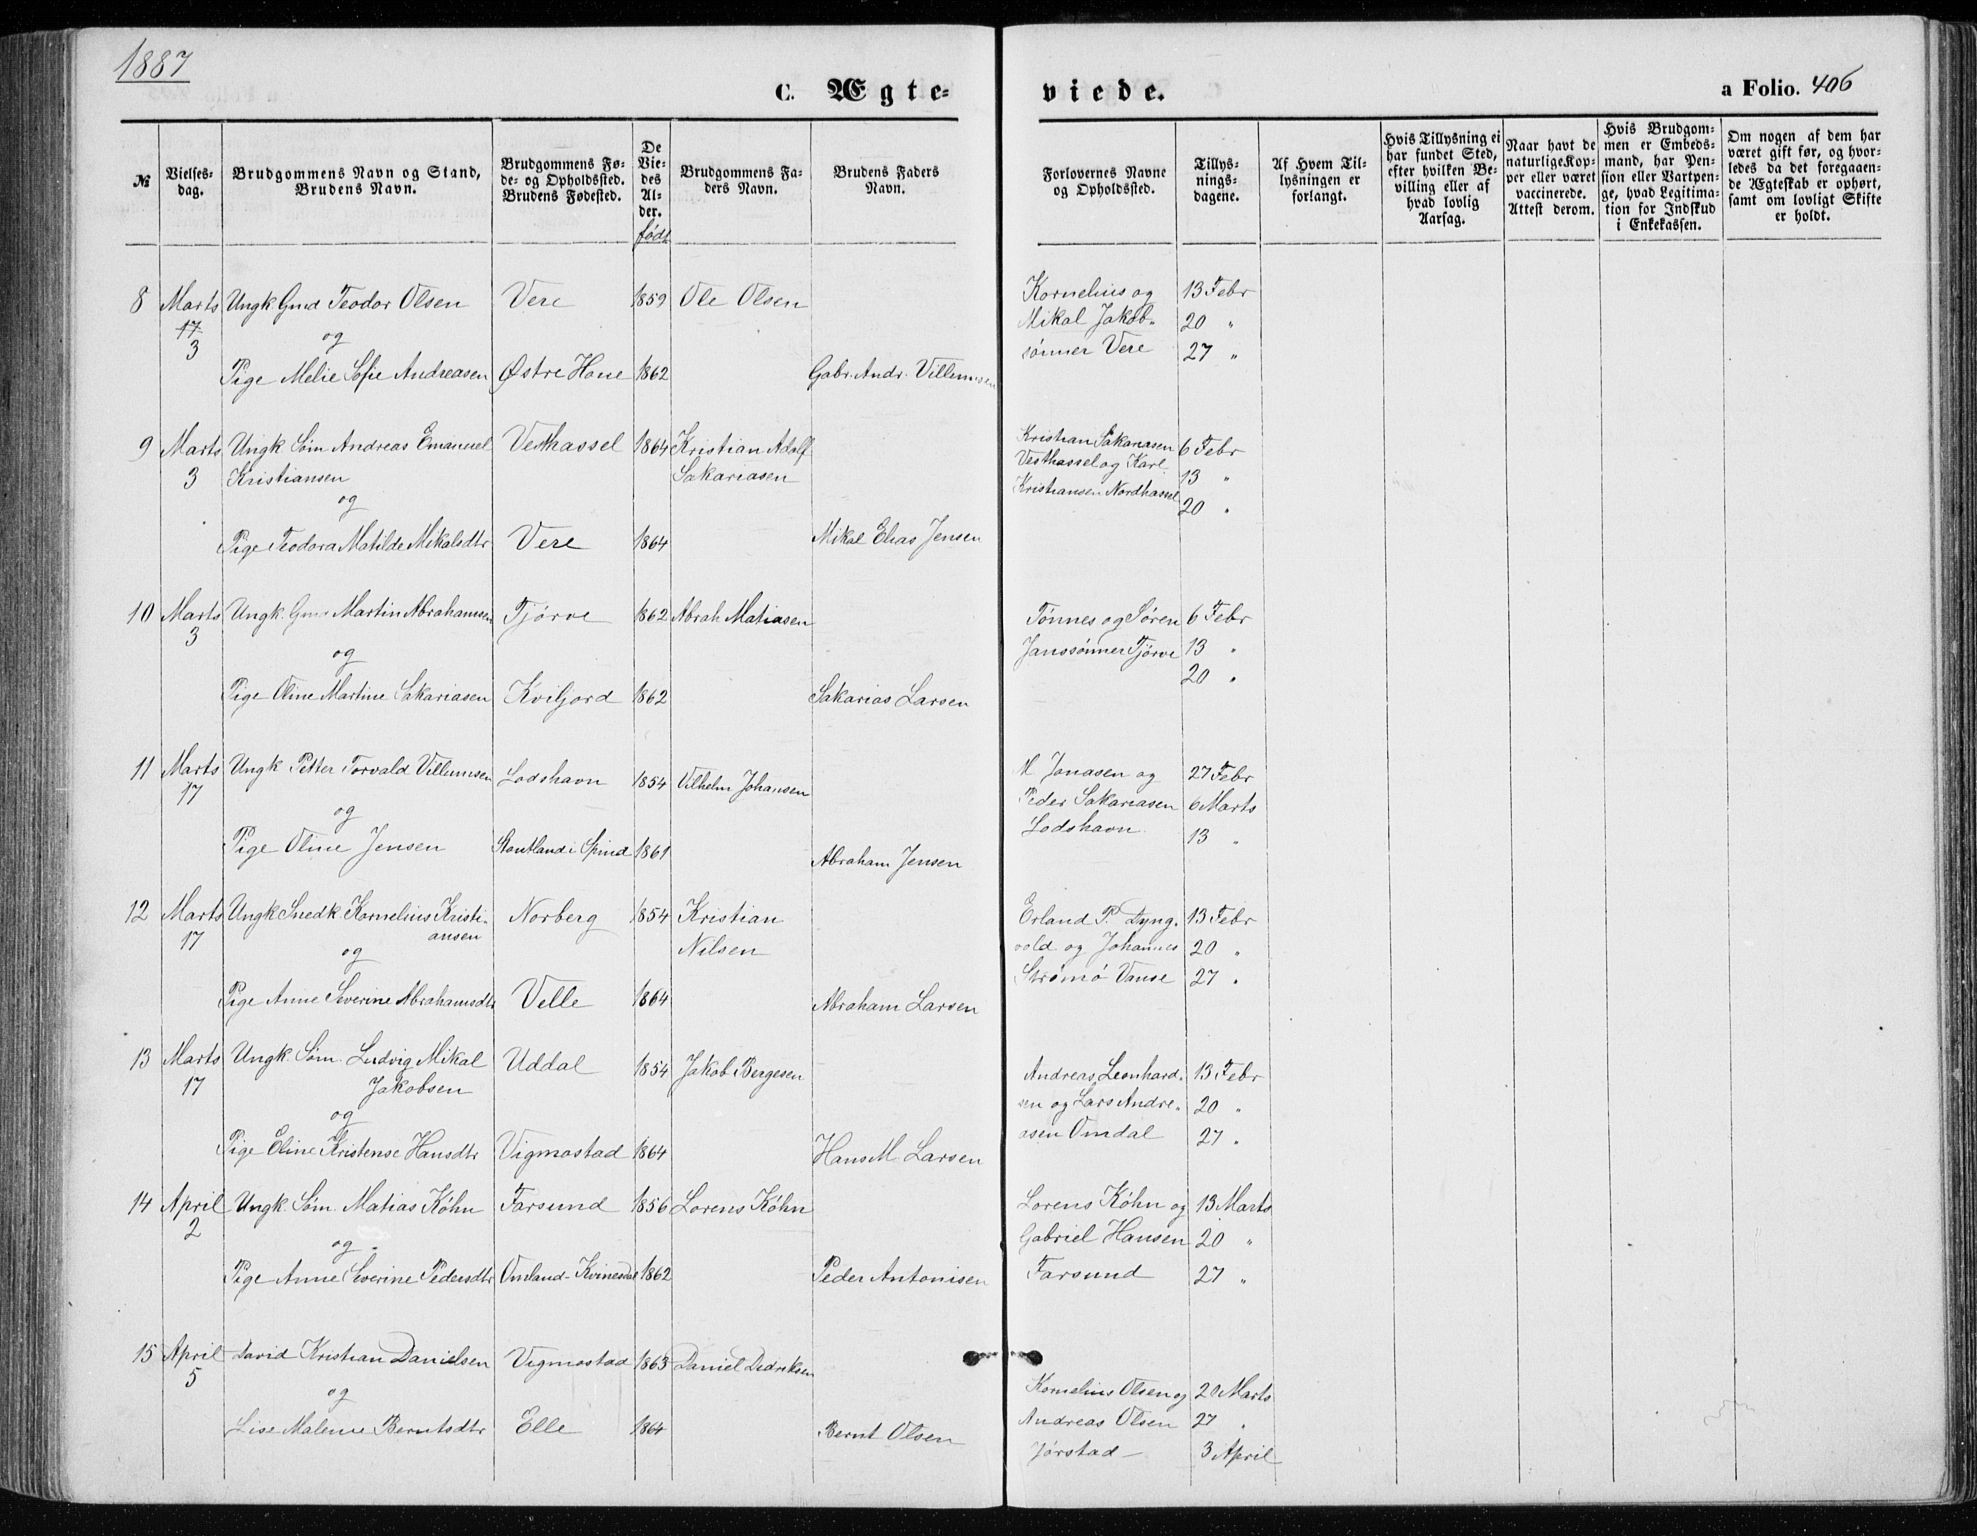 1887
C. Ægteviede.
a Folio. 406
№
Vielsesdag.
Brudgommens Navn og Stand, Brudens Navn.
Brudgommens Føde- og Opholdssted. Brudens Fødested.
De Viedes Alder. født
Brudgommens Faders Navn.
Brudens Faders Navn.
Forlovernes Navne og Opholdssted.
Tillysningsdagene.
Af Hvem Tillysningen er forlangt.
Hvis Tillysning ei har fundet Sted, efter hvilken Bevilling eller af hvad lovlig Aarsag.
Naar havt de naturlige Kopper eller været vaccinerede. Attest derom.
Hvis Brudgommen er Embedsmand, har Pension eller Vartpenge, hvad Legitimation for Indskud i Enkekassen.
Om nogen af dem har været gift før, og hvorledes da det foregaaende Ægteskab er ophørt, samt om lovligt Skifte er holdt.
8 Marts Ungk Gmd Teodor Olsen Vere 1859 Ole Olsen Kornelius og 13 Febr
17 og Mikal Jakob- 20 "
3 sønner Vere 27 "
Pige Melie Sofie Andreasen Østre Hane 1862 Gabr. Andr. Villumsen
9 Marts Ungk Søm Andreas Emanuel Vesthassel 1864 Kristian Adolf Kristian Sakariasen 6 Febr
3 Kristiansen Sakariasen Vesthassel og Karl 13 "
og Kristiansen Nordhassel 20 "
Pige Teodora Matilde Mikalsdtr Vere 1864 Mikal Elias Jensen
10 Marts Ungk. Gmd Martin Abrahamsen Tjørve 1862 Abrah Matiasen Tønnes og Søren 6 Febr
3 og Janssønner Tjørve 13 "
20 "
Pige Oline Martine Sakariasen Kviljord 1862 Sakarias Larsen
11 Marts Ungk Petter Torvald Villumsen Lodshavn 1854 Vilhelm Johansen M Jonasen og 27 Febr
17 og Peder Sakariasen 6 Marts
Lodshavn 13 "
Pige Oline Jensen i Spind 1861 Abraham Jensen
12 Marts Ungk Snedk. Kornelius Kristi- Norberg 1854 Kristian Erland P. Lyng- 13 Febr
17 ansen Nilsen vold og Johannes 20 "
og Strømø Vanse 27 "
Pige Anne Severine Abrahamsdtr Velle 1864 Abraham Larsen
13 Marts Ungk Søm. Ludvig Mikal Uddal 1854 Jakob Bergesen Andreas Leonhard- 13 Febr
17 Jakobsen sen og Lars Andre- 20 "
og asen Omdal 27 "
Pige Eline Kristense Hansdtr Vigmostad 1864 Hans M. Larsen
14 April Ungk. Søm. Matias Køhn Farsund 1856 Lorens Køhn Lorens Køhn og 13 Marts
2 og Gabriel Hansen 20 "
Pige Anne Severine Pedersdtr Omland - Kvinesdal 1862 Peder Antonisen Farsund 27 "
15 April David Kristian Danielsen Vigmostad 1863 Daniel Didriksen
5 og Kornelius Olsen og 20 Marts
Lise Malene Berntsdtr Elle 1864 Bernt Olsen Andreas Olsen 27 "
Jørstad - 3 April